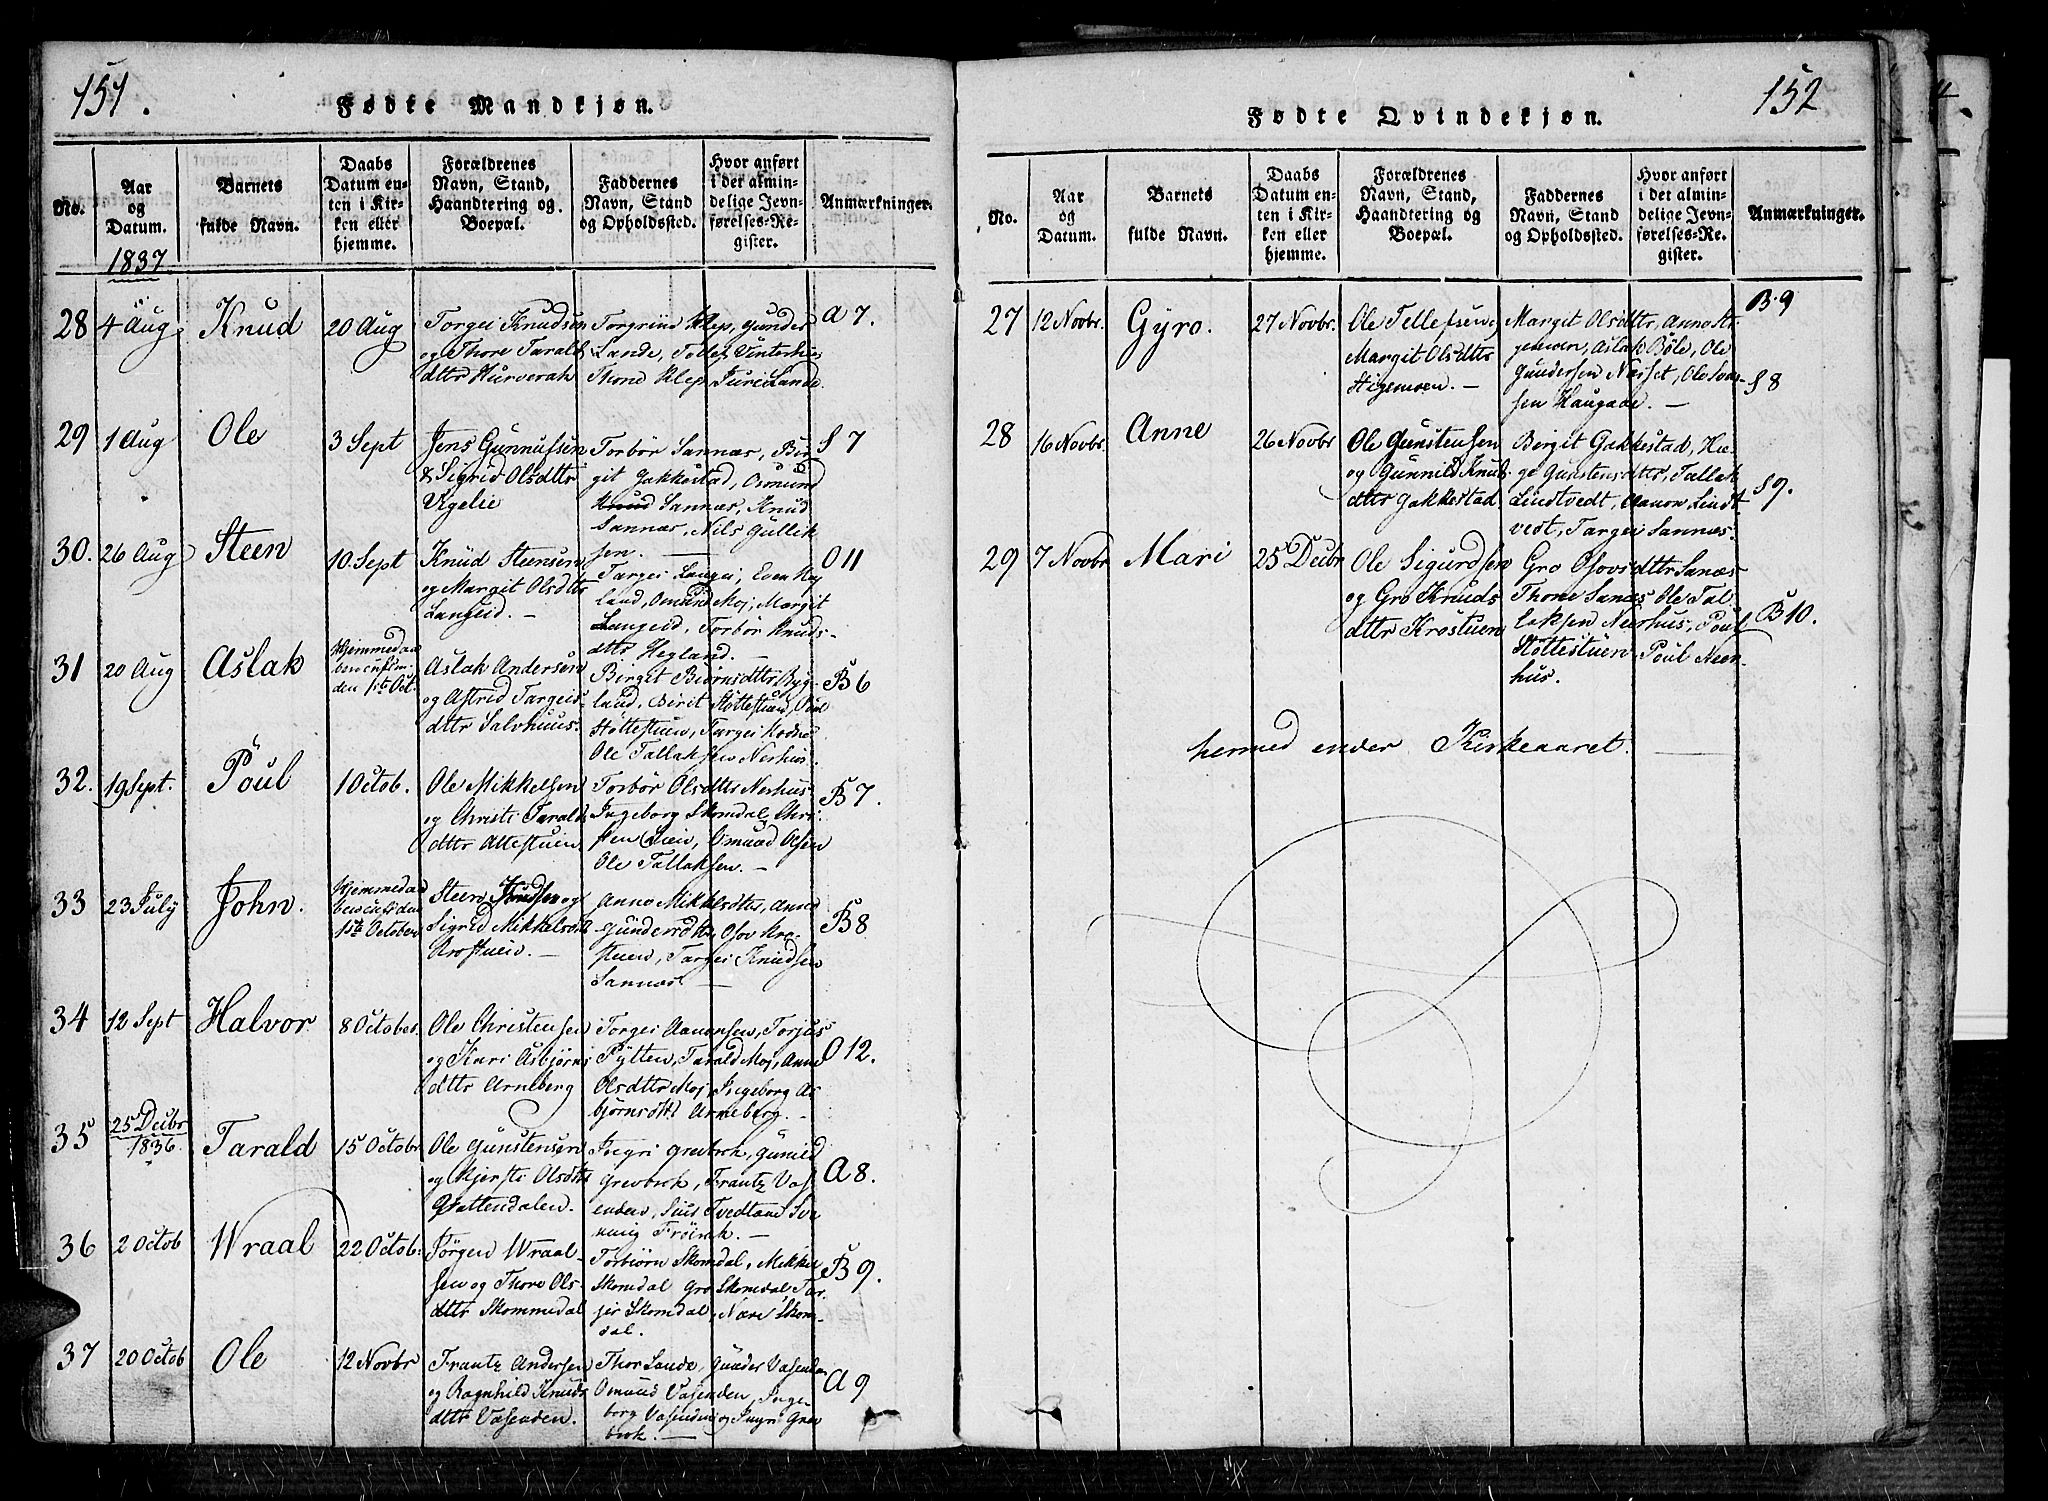 151.
Fødte Mandkjøn.
No.
Aar
og
Datum.
1837
Barnets
fulde Navn.
Daabs
Datum en-
ten i Kir-
ken eller
hjemme.
Forældrenes
Navn, Stand,
Haandtering og
Boepæl.
Faddernes
Navn, Stand
og Opholdssted.
Hvor anført
i det almin-
delige Jevn-
førelses-Re-
gister.
Anmærkninger.
28
4 Aug
Knud
20 Aug
Torgei Knudsen
og Thore Taralds
dttr Hurverak
Torgrind Klep, Gunder
Lande, Tollef Vinterhus
Thone Klep Juri Lande.
A 7.
29
1 Aug
Ole
3 Sept
Jens Gunnufsen
& Sigrid Olsdttr
Ugelie
Torbör Sannær, Bir
git Gakkestad, Osmund
Sannær, Knud
Sannær, Nils Gullik
sen.
S 7
30.
26 Aug
Steen
10 Sept
Knud Steensen
og Margit Olsdttr
Langeid. -
Targei Langei, Even Hæg
land, Omund Moj, Margit
Langeid, Torbör Knuds-
dttr Hegland.
O 11
31
20 Aug
Aslak
Hjemmedaab
den 1ste Oct.
Aslak Andersen
og Astrid Targeis-
dttr Salvhuus.
Birgit Biörnsdttr Byg-
land, Birit Stöttestuen, Poul
Stöttestuen, Targei
Ole Tallaksen Nerhus.
B 6
32.
19 Sept.
Poul
1 Octob.
Ole Mikkelsen
og Christi Taralds
dttr Attestuen
Torbör Olsdttr Nerhus
Ingeborg Skomdal, Chri-
sten Omund Olsen
Ole Tallaksen. -
B 7.
33
23 July
John.
Hjemmedaab
1ste October
Steen Knudsen og
Sigrid Mikkelsdtr
Krostuen. -
Anne Mikkelsdtter, Anne
Gundersdttr, Osov Kro-
stuen, Targei Knudsen
Sannæs -
B 8
34
12 Sept
Halvor
8 October
Ole Christensen
og Kari Asbjørns
dttr Arneberg
Torgei Aanonsen, Torjus
Pytten, Tarald Moj, Anne
Olsdttr Moj Ingeborg As
bjørnsdttr Arneberg. -
O 12.
35
25 Decbr
1836.
Tarald
15 Octobr
Ole Gunstensen
og Kjersti Olsdttr
Grottendalen.
Ingri Grevbrok, Gunild
Grevbrok, Frantz Vas
enden, Tvedtane Sve
nung Fröirak. -
A 8.
36
2 Octob
Wraal
22 Octob.
Jörgen Wraal-
sen og Thore Ols-
dttr Skommedal
Torbiørn Skomdal, Mikkel
Skomdal Gro Skomdal, Tar-
jer Skomdal, Næri Skom-
dal.
B 9.
37
20 Octob
Ole
12 Novbr
Frantz Andersen
og Ragnhild Knuds
dttr Vasenden.
Thor Lande, Gunder Vasenden
Omund Vasenden, Inge-
borg Vasenden og Ingri Grev
brok. -
A 9
152
Fødte Qvindekjøn.
No.
Aar
og
Datum.
Barnets
fulde Navn.
Daabs
Datum en-
ten i Kir-
ken eller
hjemme.
Forældrenes
Navn, Stand,
Haandtering og
Boepæl.
Faddernes
Navn, Stand
og Opholdssted.
Hvor anført
i det almin-
delige Jevn-
førelses-Re-
gister.
Anmærkninger.
27
12 Novbr.
Gyro.
27 Novbr.
Ole Tellefsen
Margit Olsdttr
Stigemoen. -
Margit Olsdttr, Anne Sti-
gemoen, Aslak Böle, Ole
Gundersen Næsset, Ole
sen Haugaae. -
B. 9
S 8
28
16 Novbr.
Anne
26 Novbr
Ole Gunstensen
og Gunnild Knuds
dttr Gakkestad
Birgit Gakkestad, Hæ-
ge Gunstensdtter, Tallak
Lindtvedt, Aanon Lindt
vedt, Targei Sannæs.
S 9.
29
7 Novbr
Mari
25 Decbr
Ole Sigurdsen
og Gro Knuds
dttr Krostuen
Gro Osovsdttr Sanæs
Thone Sanæs Ole Tal
laksen Neerhus, Poul
Stöttestuen Poul Neer-
hus.
B 10.
hermed ender Kirkeaaret.